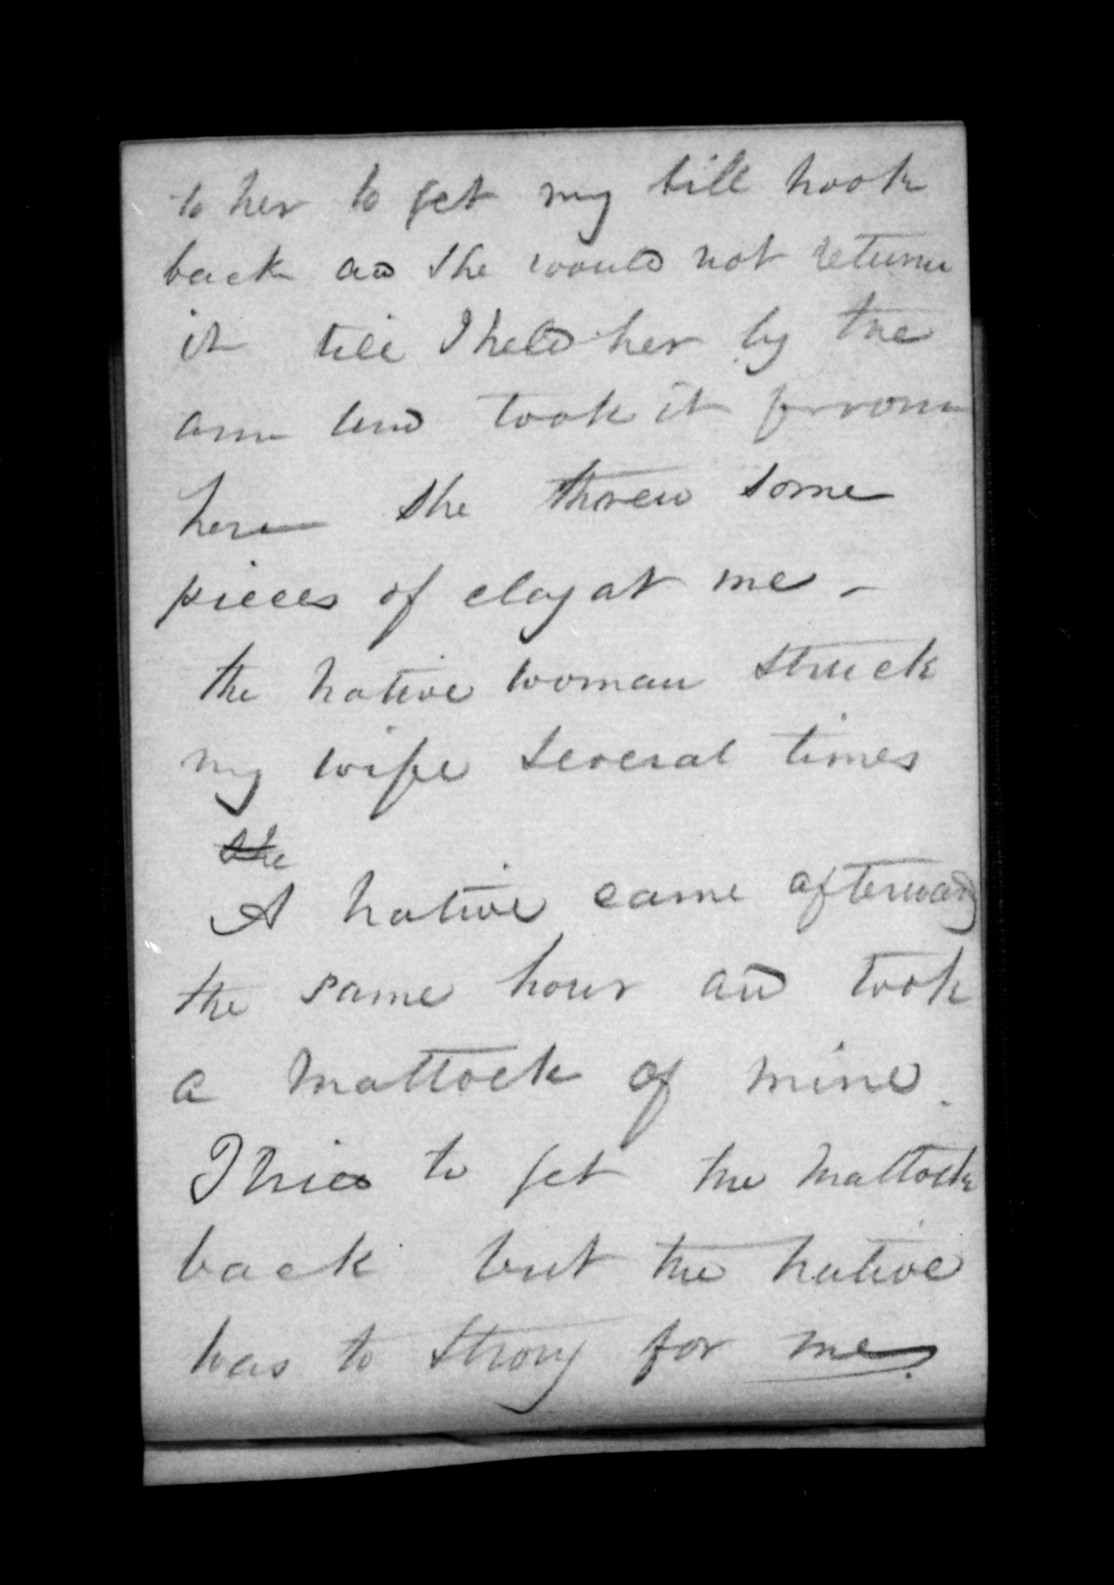 to her to get my bill hook
back and she would not return
it till I held her by the
arm and took it from
her she threw some
pieces of clay at me -
the native woman struck
my wife several times
she
A native came afterward
the same hour and took
a mattock of mine.
I tried to get the mattock
back but the native
was to strong for me.